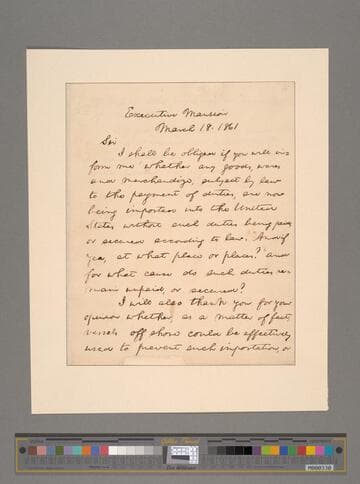 Executive Mansion
March 18. 1861
Sir
I shall be obliged if you will in-
form me whether any goods, wares
and merchandize, subject by law
to the payment of duties, are now
being imported into the United
States without such duties being paid,
or secured according to law. And if
yea, at what place or places? and
for what cause do such duties re-
main unpaid, or secured?
I will also thank you for your
opinion whether, as a matter of fact,
vessels off shore could be effectively
used to prevent such importation, or
M000338